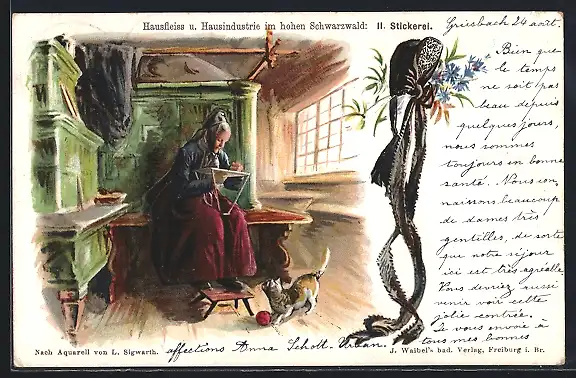 Hausfleiss u. Hausindustrie im hohen Schwarzwald: II. Stickerei.
Griesbach 24 août.
Bien que
le temps
ne soit pas
beau depuis
quelques jours,
nous sommes
toujours en bonne
santé. Nous con-
naissons beaucoup
de dames très
gentilles, de sorte
que notre séjour
ici est très agréable.
Vous devriez aussi
venir voir cette
jolie contrée.
Je vous envoie à
tous mes bonnes
affections Anna Scholl-Urban.
Nach Aquarell von L. Sigwarth.
J. Waibel's bad. Verlag, Freiburg i. Br.